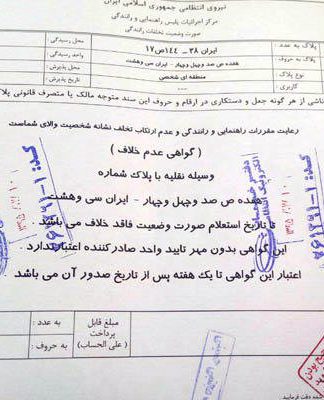 نیروی انتظامی جمهوری اسلامی ایران
مرکز اجرائیات پلیس راهنمایی و رانندگی
صورت وضعیت تخلفات رانندگی
پلاک به عدد : ایران ۳۸ ــ ۱۴۴ص۱۷ محل رسیدگی :
پلاک به حروف : هفده ص صد وچهل وچهار - ایران سی وهشت واحد رسیدگی :
نوع پلاک : منطقه ای شخصی تاریخ چاپ :
کاربری : تاریخ پذیرش :
ناشی از هر گونه جعل و دستکاری در ارقام و حروف این سند متوجه مالک یا متصرف قانونی پلا
رعایت مقررات راهنمایی و رانندگی و عدم ارتکاب تخلف نشانه شخصیت والای شماست
( گواهی عدم خلاف )
وسیله نقلیه با پلاک شماره
هفده ص صد وچهل وچهار - ایران سی وهشت
تا تاریخ استعلام صورت وضعیت فاقد خلاف می باشد
این گواهی بدون مهر تایید واحد صادرکننده اعتبار ندارد
اعتبار این گواهی تا یک هفته پس از تاریخ صدور آن می باشد
مبلغ قابل پرداخت ( علی الحساب )
به عدد :
به حروف :
دقت فرمایید